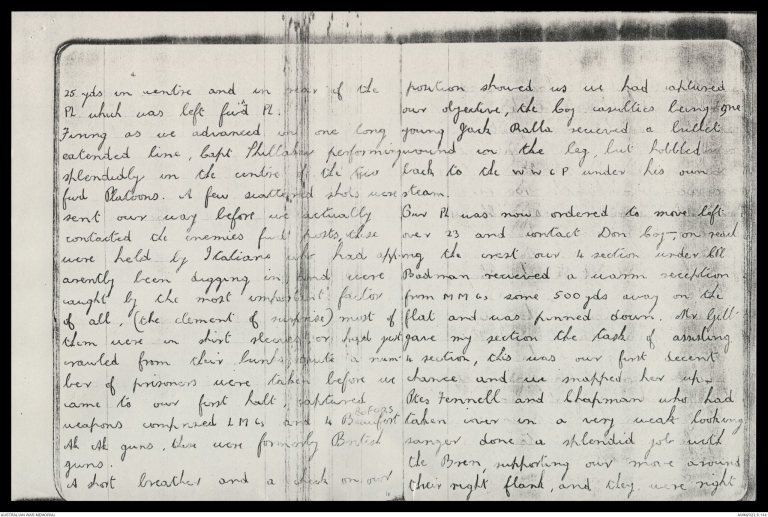 25 yds in centre and in rear of the
Pl which was left fwd Pl.
Firing as we advanced in one long
extended line, Capt Phillaher performing
splendidly in the centre of the two
fwd Platoons. A few scattered shots were
sent our way before we actually
contacted the enemies fwd posts, these
were held by Italians who had app-
arently been digging in, and were
caught by the most important factor
of all, (the element of surprise) most of
them were in shirt sleeves or had just
crawled from their bunks, quite a num-
ber of prisoners were taken before we
came to our first halt, captured
weapons comprised LMGs and 4 BOFORS
Ak Ak guns, these were formerly British
guns.
A short breather and a check on our
position showed us we had captured
our objective, the Coy casulties being one
young Jack Ralla recieved a bullet
wound in the leg, but hobbled
back to the W W C P under his own
steam.
Our Pl was now ordered to move left
over 23 and contact Don Coy, on reach
ing the crest our 4 section under Cpl
Badman recieved a warm reception
from MMGs some 500 yds away on the
flat and was pinned down. Mr Gill
gave my section the task of assisting
4 section, this was our first decent
chance and we snapped her up.
Ptes Fennell and Chapman who had
taken over in a very weak looking
sangar done a splendid job with
the Bren, supporting our move around
their right flank, and they were right
AUSTRALIAN WAR MEMORIAL